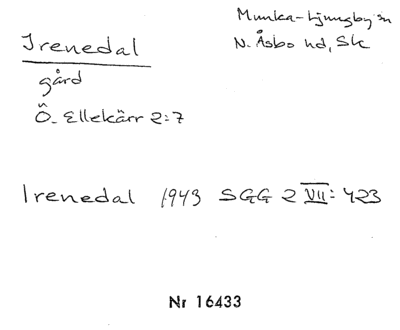 Irenedal
Munka-Ljungby sn
N. Åsbo hd, Sk
gård
Ö. Ellekärr 2:7
Irenedal 1943 SGG 2 VII: 423
Nr 16433